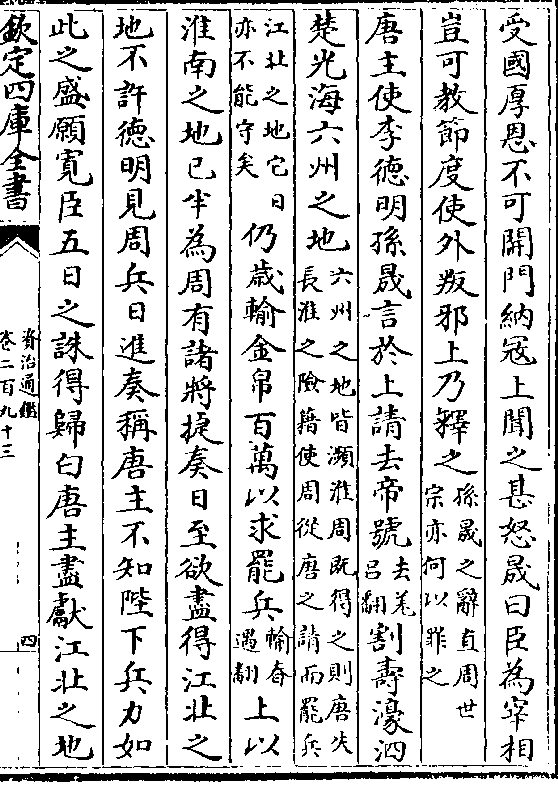 受國厚恩不可開門納寇上聞之甚怒晟曰臣為宰相
豈可教節度使外叛邪上乃釋之孫晟之辭直周世宗亦何以罪之
唐主使李德明孫晟言於上請去帝號去羌呂翻割壽濠泗
楚光海六州之地六州之地皆瀕淮周既得之則唐失長淮之險藉使周從唐之請而罷兵
江北之地它日亦不能守矣仍歲輸金帛百萬以求罷兵輸舂遇翻上以
淮南之地已半為周有諸將捷奏日至欲盡得江北之
地不許德明見周兵日進奏稱唐主不知陛下兵力如
此之盛願寬臣五日之誅得歸白唐主盡獻江北之地
欽定四庫全書
資治通鑑
卷二百九十三
四